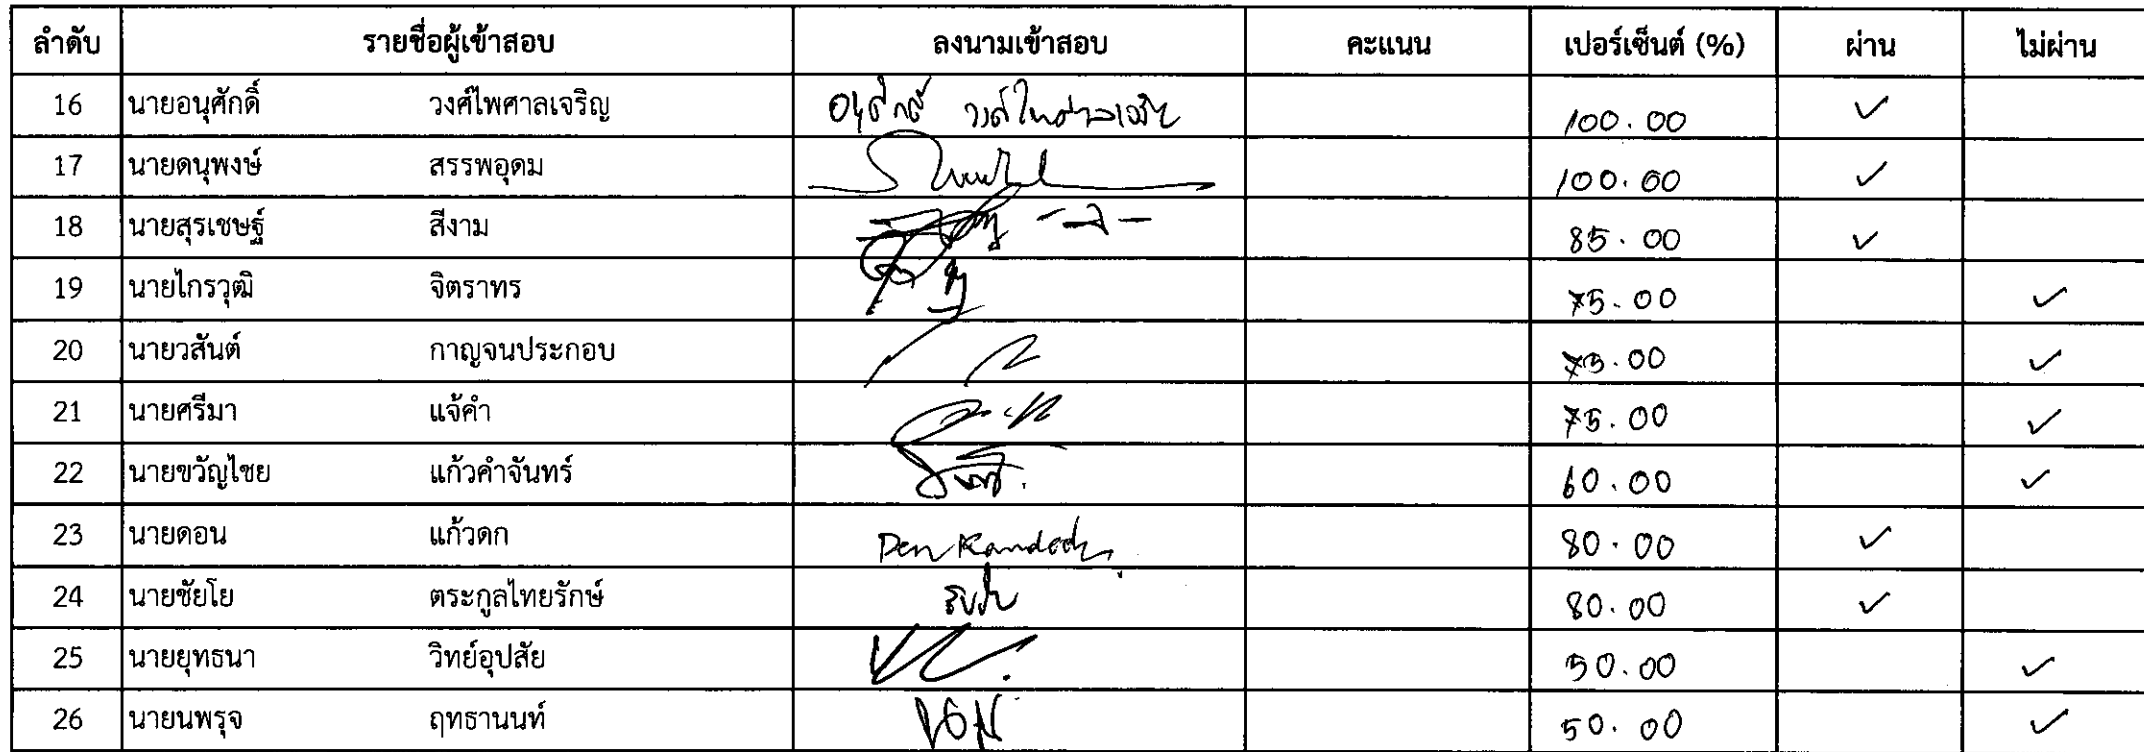 ลำดับ รายชื่อผู้เข้าสอบ ลงนามเข้าสอบ คะแนน เปอร์เซ็นต์ (%) ผ่าน ไม่ผ่าน
16 นายอนุศักดิ์ วงศ์ไพศาลเจริญ 100.00 ✓
17 นายดนุพงษ์ สรรพอุดม 100.00 ✓
18 นายสุรเชษฐ์ สีงาม 85.00 ✓
19 นายไกรวุฒิ จิตราทร 75.00 ✓
20 นายวสันต์ กาญจนประกอบ 75.00 ✓
21 นายศรีมา แจ้คำ 75.00 ✓
22 นายขวัญไชย แก้วคำจันทร์ 60.00 ✓
23 นายดอน แก้วดก 80.00 ✓
24 นายชัยโย ตระกูลไทยรักษ์ 80.00 ✓
25 นายยุทธนา วิทย์อุปสัย 50.00 ✓
26 นายนพรุจ ฤทธานนท์ 50.00 ✓